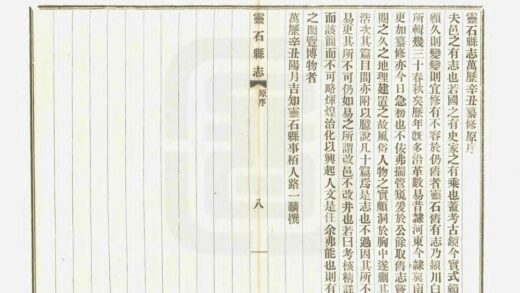 靈石縣志萬歷辛丑纂修原序
夫邑之有志也若國之有史家之有乘也蓋考古鏡今實式賴
顧久則變變則宜修有不容於仍舊者靈石舊有志乃潁川白
所輯幾三十春秋矣歷年旣多沿革數易昔隸河東今隸冀南
更加纂修亦今日急務也不佞弗揣管窺爰於公餘取舊志
閱之久之地理建置之故風俗人物之實頗洞於胸中遂刪其
浩次其篇目間亦附以臆說凡十篇爲是志也不過因其所不
易更其所不可仍如易之所謂改邑不改井也若曰考核精詳
而該簡而不可略煇煌治化以興起人文是在余弗能也則有
之閎覽博物者
萬歷辛丑陽月吉知靈石縣事栢人路一麟撰
靈石縣志
原序
八